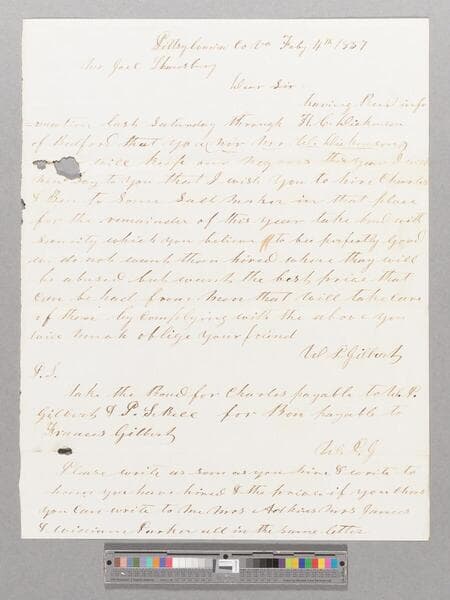 Pittsylvania Co Va Feby 4th 1857
Mr Joel Shrewsbury
Dear Sir
having Recd infor
mation last Saturday through H. C. Dickinson
of Bedford that you nor Mr Wm Dickinson
will keep any negroes this year I will
say to you that I wish you to hire Charles
& Ben to some Salt maker in that place
for the remainder of this year take bond with
security which you believe to be perfectly good
we do not want them hired where they will
be abused but want the best price that
can be had from men that will take care
of them by complying with the above you
will much oblige your friend
W. P. Gilbert
P.S.
take the Bond for Charles payable to W. P.
Gilbert & P. S. for Ben payable to
Francis Gilbert
W. P. G
Please write as soon as you hire & write to
whom you have hired & the price if you
you can write to me Mrs Adkins Mrs James
& William Parker all in the same letter